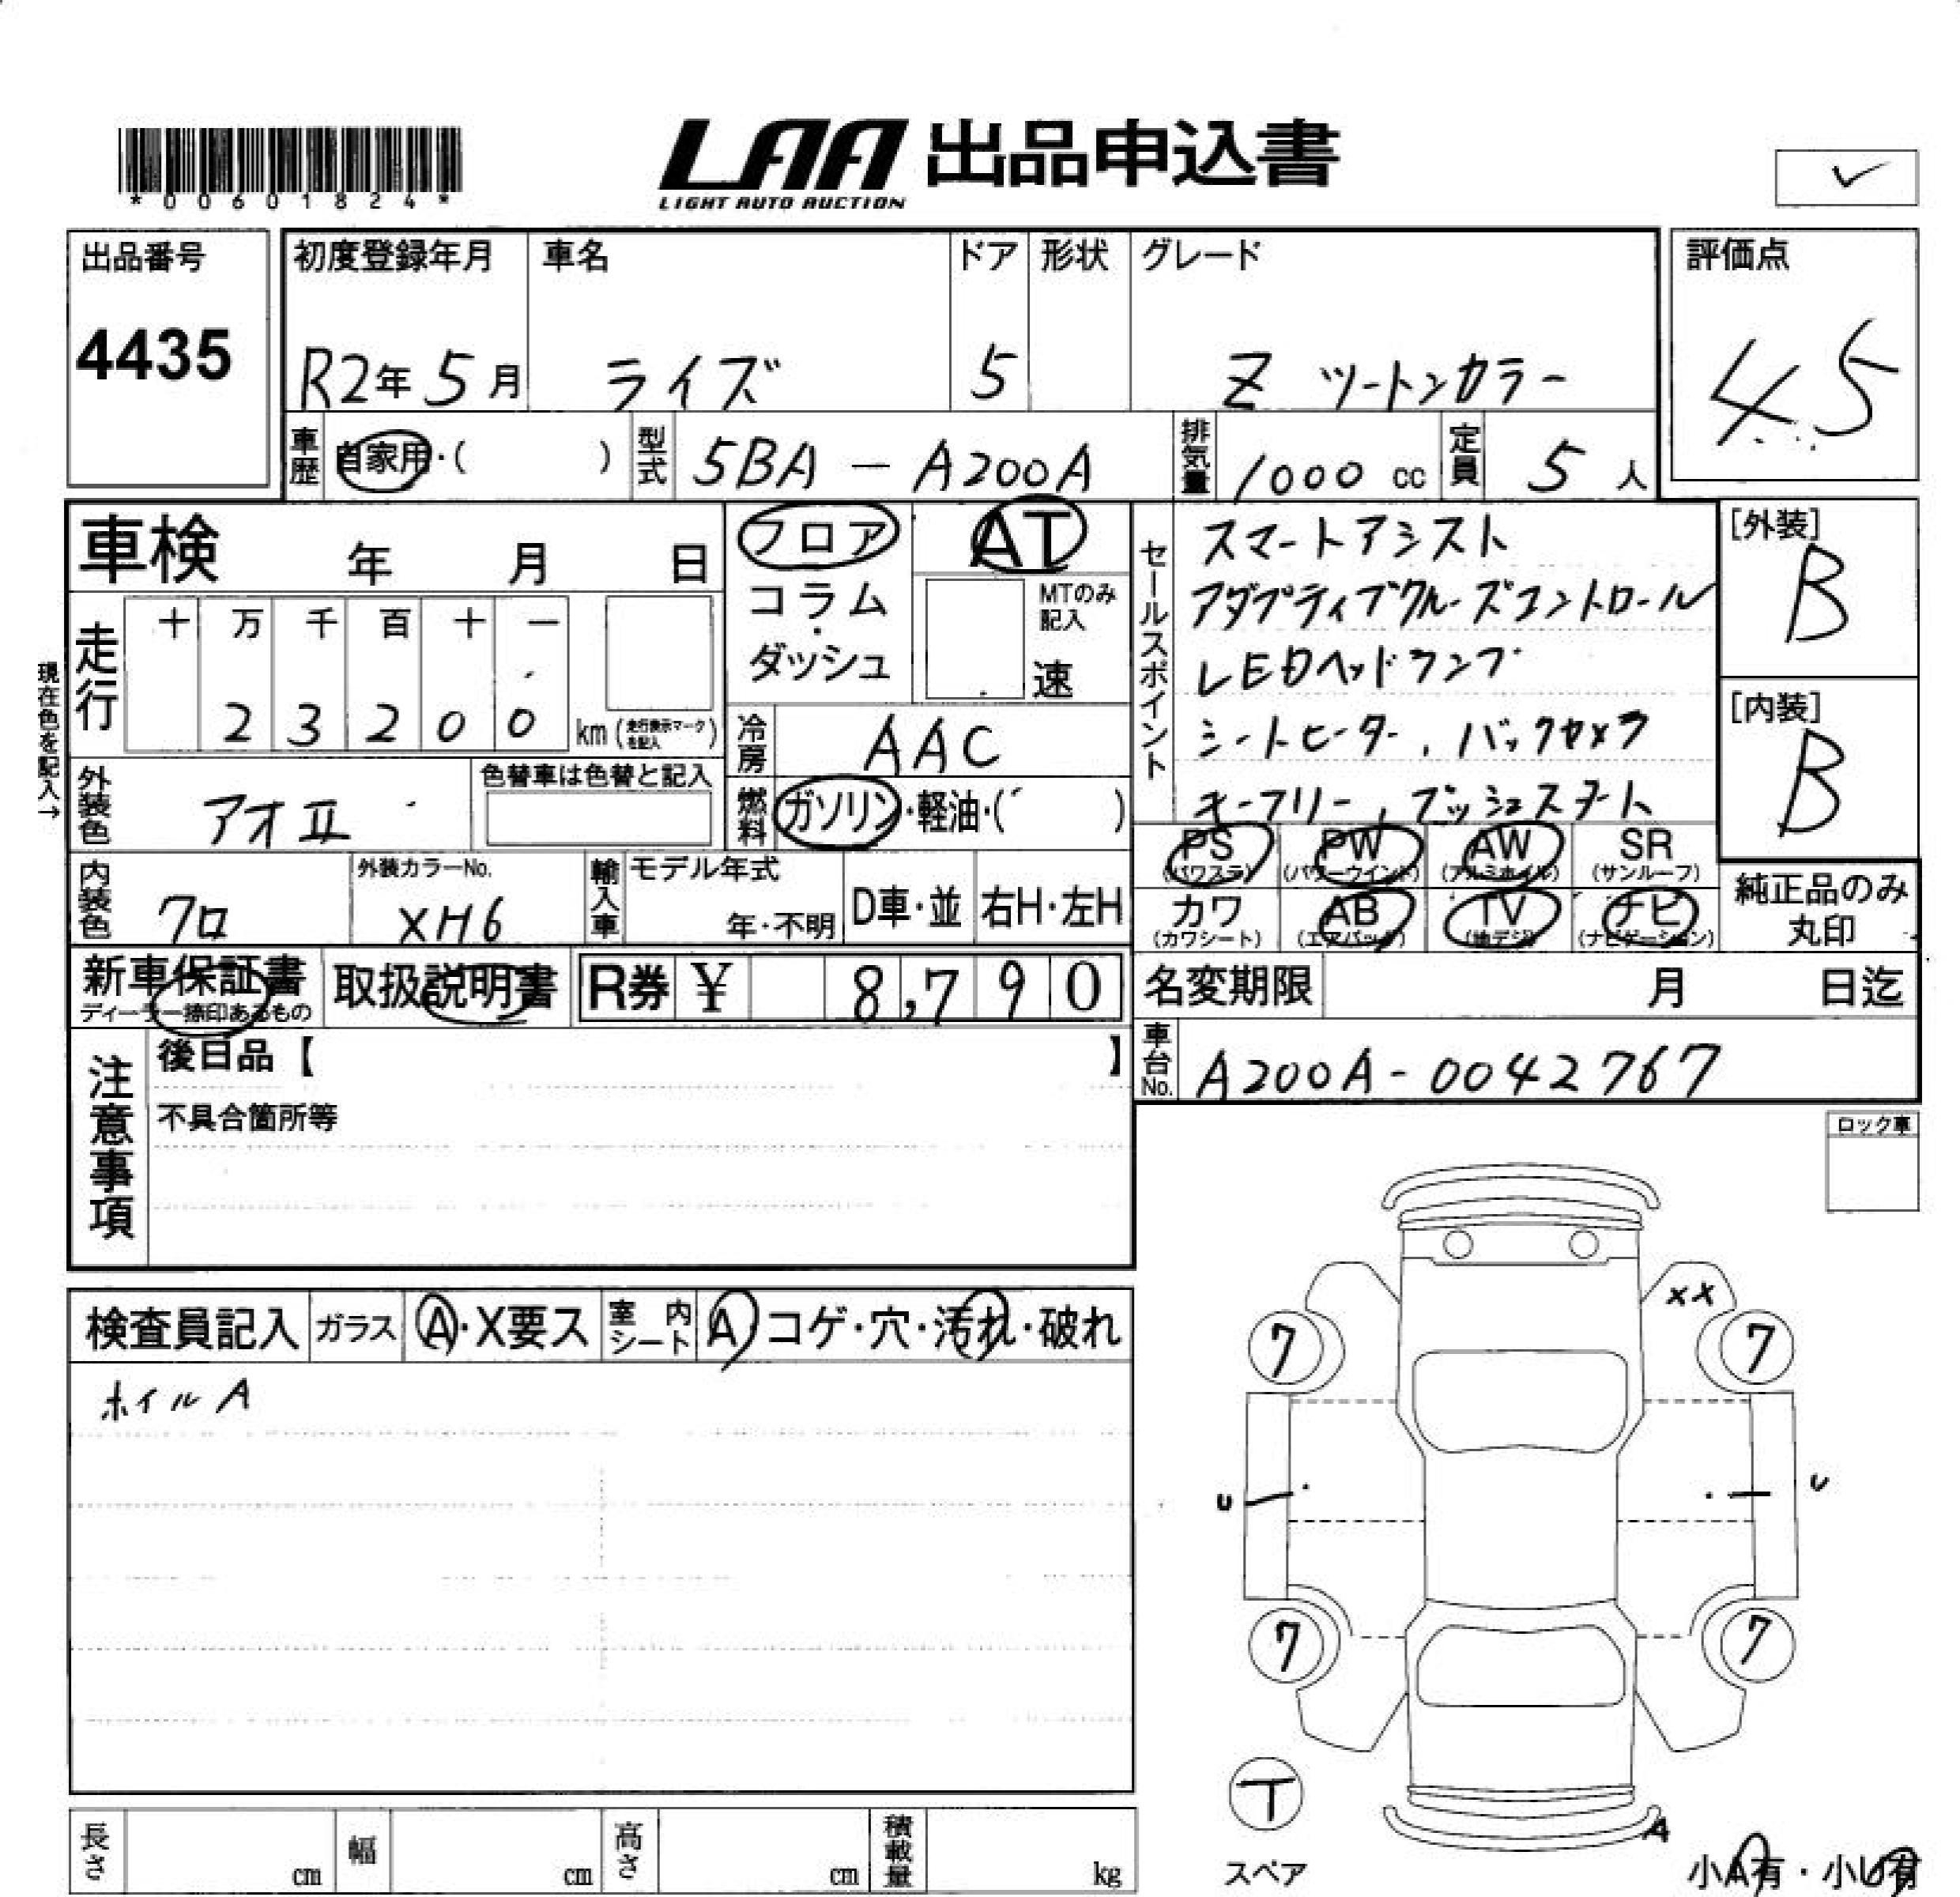 *00601824*
LAA 出品申込書
LIGHT AUTO AUCTION
✓
出品番号
4435
初度登録年月 車名 ドア 形状 グレード
R2年5月 ライズ 5 Z ツートンカラー
評価点
4.5
車歴 自家用・( ) 型式 5BA-A200A 排気量 1000cc 定員 5人
車検 年 月 日
フロア
コラム・ダッシュ
AT
MTのみ記入
速
現在色を記入→
走行 十 万 千 百 十 一
23200 km(走行表示マークを記入)
冷房 AAC
外装色 アオII
色替車は色替と記入
燃料 ガソリン・軽油・( )
セールスポイント
スマートアシスト
アダプティブクルーズコントロール
LEDヘッドランプ
シートヒーター、バックカメラ
キーフリー、プッシュスタート
[外装]
B
[内装]
B
PS(パワステ) PW(パワーウインド) AW(アルミホイル) SR(サンルーフ)
カワ(カワシート) AB(エアバッグ) TV(地デジ) ナビ(ナビゲーション)
純正品のみ
丸印
内装色 クロ
外装カラーNo.
XH6
輸入車 モデル年式
年・不明 D車・並 右H・左H
新車保証書
ディーラー捺印あるもの
取扱説明書 R券 ¥ 8,790
名変期限 月 日迄
車台No. A200A-0042767
注意事項
後日品【 】
不具合箇所等
ロック車
検査員記入 ガラス A・X要ス 室内シート A コゲ・穴・汚れ・破れ
ホイルA
XX
7 7
U U
7 7
T
スペア
A
小A有・小U有
長さ cm 幅 cm 高さ cm 積載量 kg